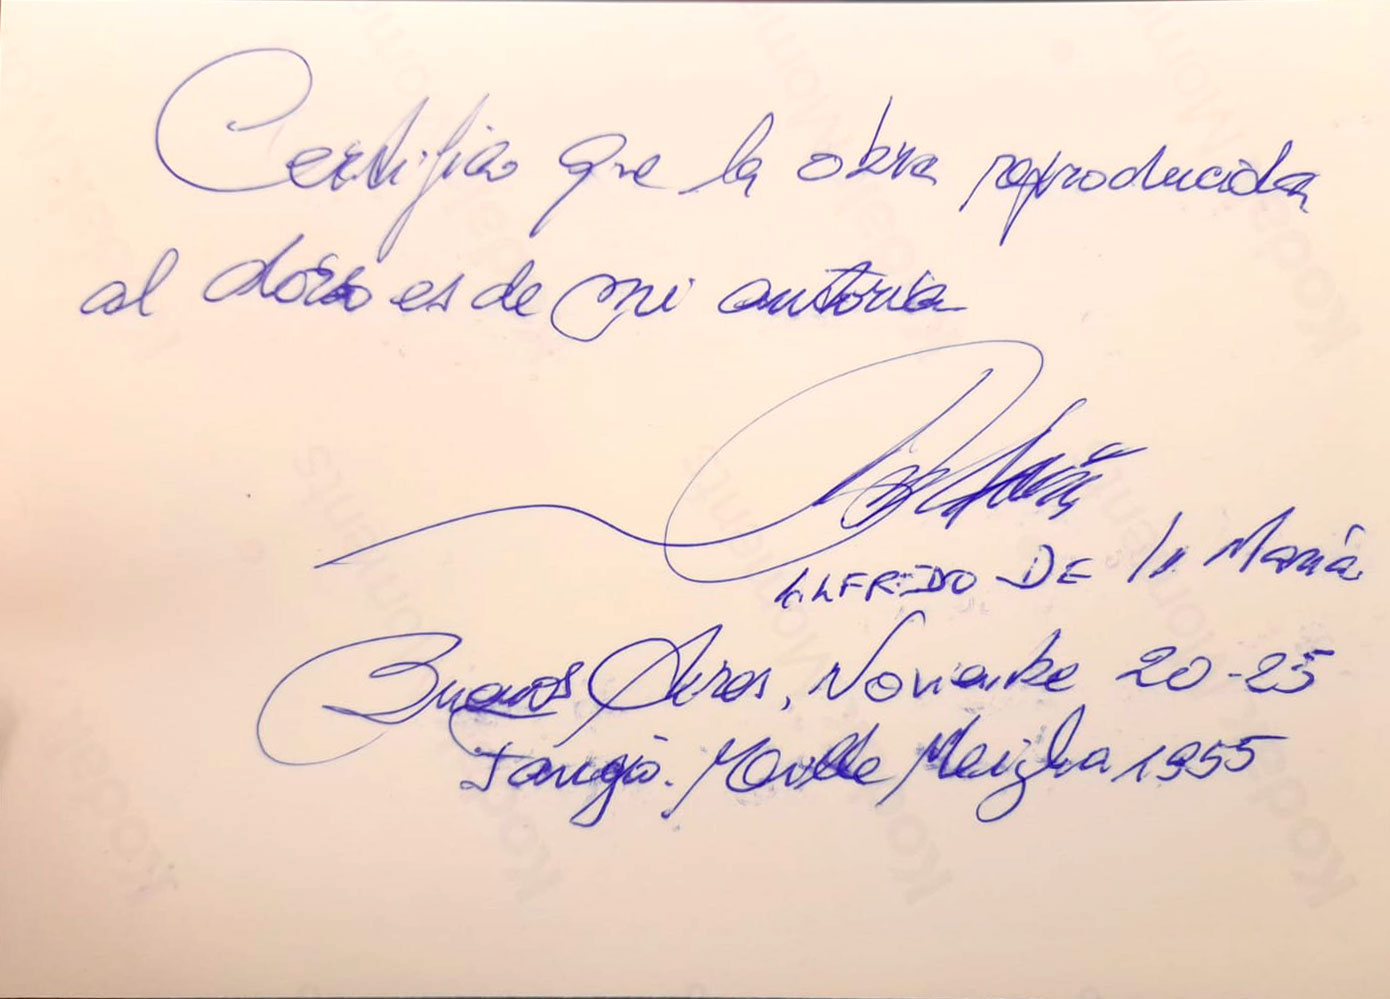 Certifico que la obra reproducida
al dorso es de mi autoria
ALFREDO DE la Maria
Buenos Aires, Noviembre 20-25
Tango. Mouille 1955
Kodak Moments